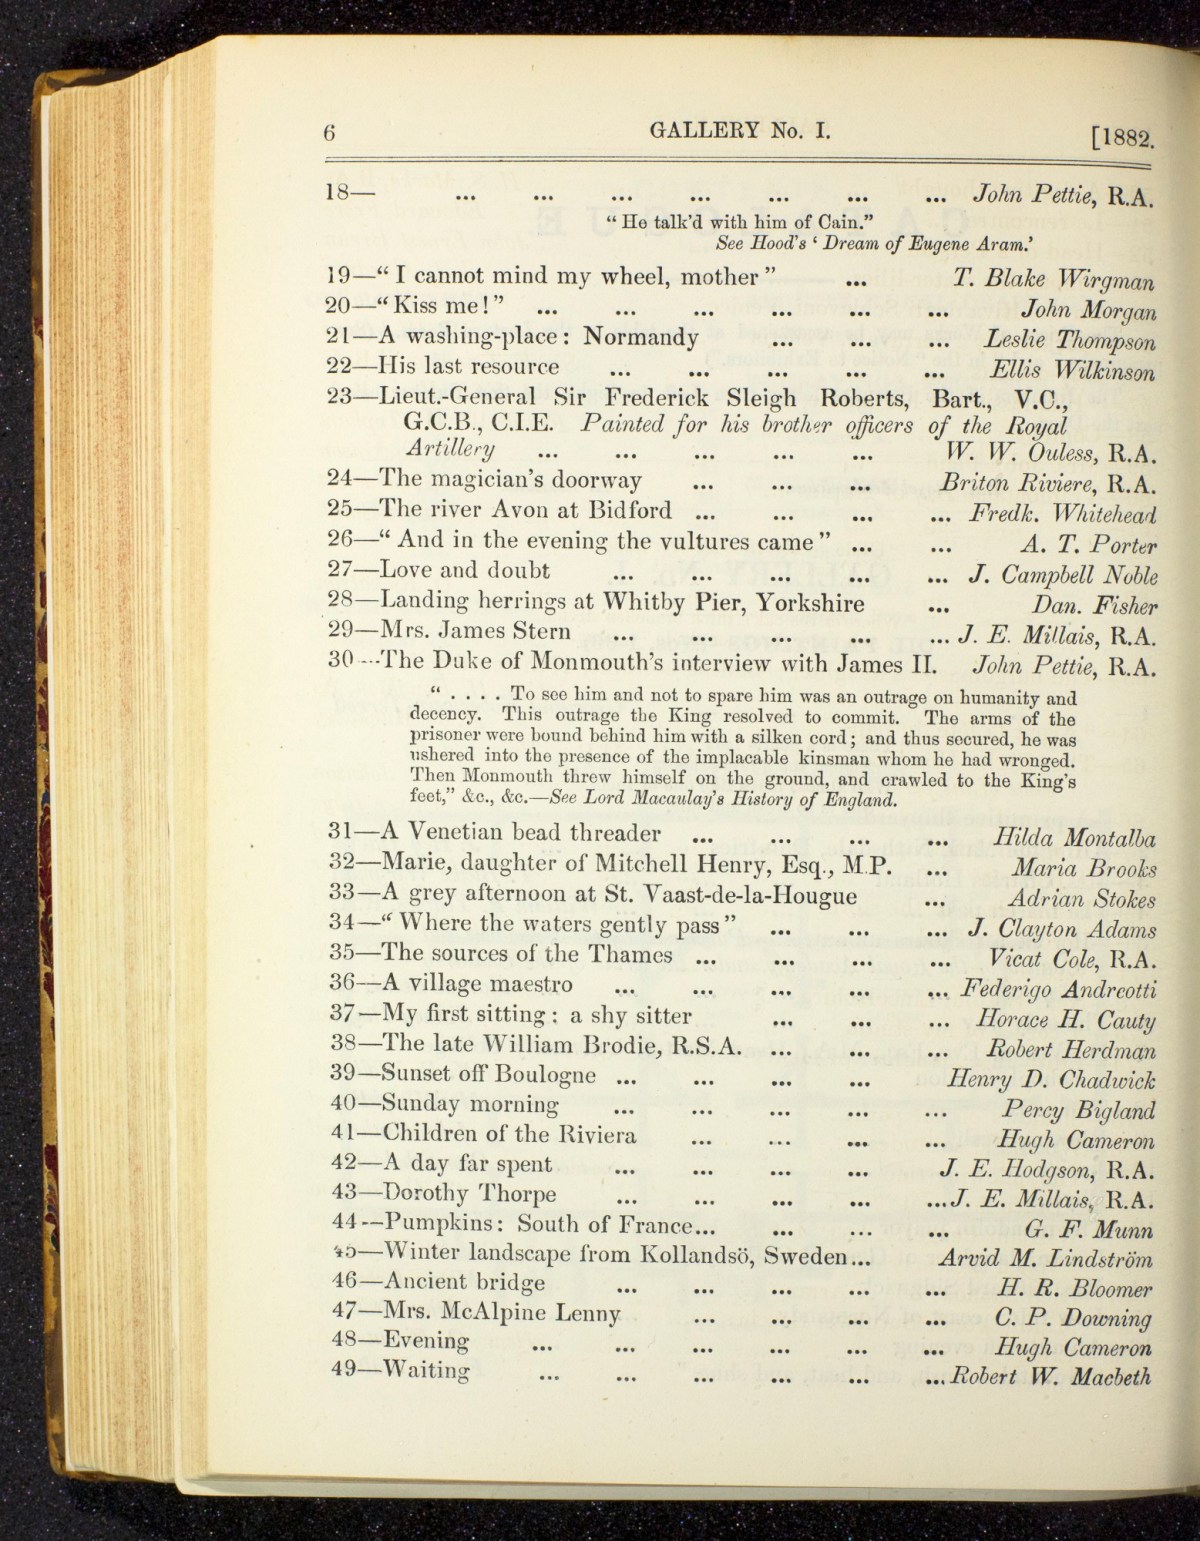 6 GALLERY No. I. [1882.
18— ... ... ... ... ... ... ... John Pettie, R.A.
“ He talk’d with him of Cain.”
See Hood’s ‘ Dream of Eugene Aram.’
19—“ I cannot mind my wheel, mother ” ... T. Blake Wirgman
20—“ Kiss me! ” ... ... ... ... ... ... John Morgan
21—A washing-place : Normandy ... ... ... Leslie Thompson
22—His last resource ... ... ... ... ... Ellis Wilkinson
23—Lieut.-General Sir Frederick Sleigh Roberts, Bart., V.C.,
G.C.B., C.I.E. Painted for his brother officers of the Royal
Artillery ... ... ... ... ... W. W. Ouless, R.A.
24—The magician’s doorway ... ... ... Briton Riviere, R.A.
25—The river Avon at Bidford ... ... ... ... Fredk. Whitehead
26—“ And in the evening the vultures came ” ... ... A. T. Porter
27—Love and doubt ... ... ... ... ... J. Campbell Noble
28—Landing herrings at Whitby Pier, Yorkshire ... Dan. Fisher
29—Mrs. James Stern ... ... ... ... ... J. E. Millais, R.A.
30—The Duke of Monmouth’s interview with James II. John Pettie, R.A.
“ . . . . To see him and not to spare him was an outrage on humanity and
decency. This outrage the King resolved to commit. The arms of the
prisoner were bound behind him with a silken cord ; and thus secured, he was
ushered into the presence of the implacable kinsman whom he had wronged.
Then Monmouth threw himself on the ground, and crawled to the King’s
feet,” &c., &c.—See Lord Macaulay’s History of England.
31—A Venetian bead threader ... ... ... ... Hilda Montalba
32—Marie, daughter of Mitchell Henry, Esq., M.P. ... Maria Brooks
33—A grey afternoon at St. Vaast-de-la-Hougue ... Adrian Stokes
34—“ Where the waters gently pass ” ... ... ... J. Clayton Adams
35—The sources of the Thames ... ... ... ... Vicat Cole, R.A.
36—A village maestro ... ... ... ... ... Federigo Andreotti
37—My first sitting : a shy sitter ... ... ... Horace H. Cauty
38—The late William Brodie, R.S.A. ... ... ... Robert Herdman
39—Sunset off Boulogne ... ... ... ... Henry D. Chadwick
40—Sunday morning ... ... ... ... ... Percy Bigland
41—Children of the Riviera ... ... ... ... Hugh Cameron
42—A day far spent ... ... ... ... J. E. Hodgson, R.A.
43—Dorothy Thorpe ... ... ... ... ... J. E. Millais, R.A.
44—Pumpkins : South of France... ... ... ... G. F. Munn
45—Winter landscape from Kollandsö, Sweden... Arvid M. Lindström
46—Ancient bridge ... ... ... ... ... H. R. Bloomer
47—Mrs. McAlpine Lenny ... ... ... ... C. P. Downing
48—Evening ... ... ... ... ... ... Hugh Cameron
49—Waiting ... ... ... ... ... ... Robert W. Macbeth